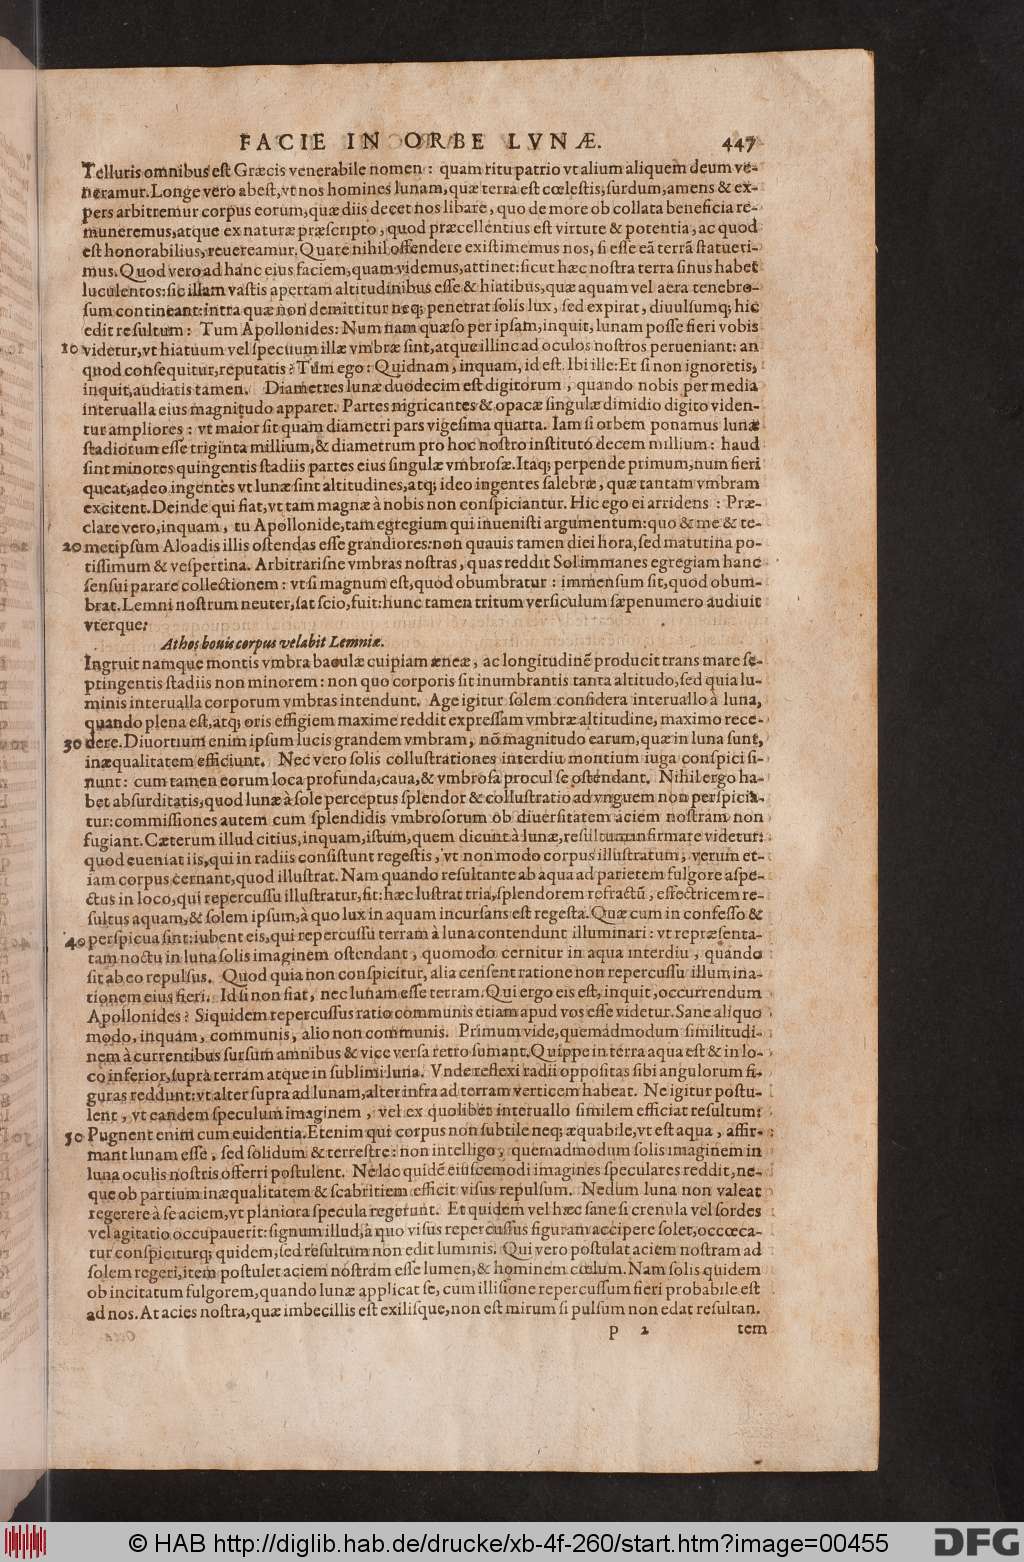 FACIE IN ORBE LVNÆ. 447
Telluris omnibus est Græcis venerabile nomen: quam ritu patrio vt alium aliquem deum ve-
neramur. Longe vero abest, vt nos homines lunam, quæ terra est cœlestis, surdum, amens & ex-
pers arbitremur corpus eorum, quæ diis decet nos libare, quo de more ob collata beneficia re-
muneremus, atque ex naturæ præscripto, quod præcellentius est virtute & potentia, ac quod
est honorabilius, reuereamur. Quare nihil offendere existimemus nos, si esse eã terrã statueri-
mus. Quod vero ad hanc eius faciem, quam videmus, attinet: sicut hæc nostra terra sinus habet
luculentos: sic illam vastis apertam altitudinibus esse & hiatibus, quæ aquam vel aera tenebro-
sum contineant: intra quæ non demittitur neq; penetrat solis lux, sed expirat, diuulsumq; hic
edit resultum: Tum Apollonides: Num nam quæso per ipsam, inquit, lunam posse fieri vobis
10 videtur, vt hiatuum vel specuum illæ vmbræ sint, atque illinc ad oculos nostros perueniant: an
quod consequitur, reputatis? Tum ego: Quidnam, inquam, id est. Ibi ille: Et si non ignoretis,
inquit, audiatis tamen. Diametres lunæ duodecim est digitorum, quando nobis per media
interualla eius magnitudo apparet. Partes nigricantes & opacæ singulæ dimidio digito viden-
tur ampliores: vt maior sit quam diametri pars vigesima quarta. Iam si orbem ponamus lunæ
stadiorum esse triginta millium, & diametrum pro hoc nostro instituto decem millium: haud
sint minores quingentis stadiis partes eius singulæ vmbrosæ. Itaq; perpende primum, num fieri
queat, adeo ingentes vt lunæ sint altitudines, atq; ideo ingentes salebræ, quæ tantam vmbram
excitent. Deinde qui fiat, vt tam magnæ à nobis non conspiciantur. Hic ego ei arridens: Præ-
clare vero, inquam, tu Apollonide, tam egregium qui inuenisti argumentum: quo & me & te-
20 metipsum Aloadis illis ostendas esse grandiores: non quauis tamen diei hora, sed matutina po-
tissimum & vespertina. Arbitrarisne vmbras nostras, quas reddit Sol immanes egregiam hanc
sensui parare collectionem: vt si magnum est, quod obumbratur: immensum sit, quod obum-
brat. Lemni nostrum neuter, sat scio, fuit: hunc tamen tritum versiculum sæpenumero audiuit
vterque:
Athos bouis corpus velabit Lemniæ.
Ingruit namque montis vmbra baculæ cuipiam æneæ, ac longitudinẽ producit trans mare se-
ptingentis stadiis non minorem: non quo corporis sit inumbrantis tanta altitudo, sed quia lu-
minis interualla corporum vmbras intendunt. Age igitur solem considera interuallo à luna,
quando plena est, atq; oris effigiem maxime reddit expressam vmbræ altitudine, maximo rece-
30 dere. Diuortium enim ipsum lucis grandem vmbram, nõ magnitudo earum, quæ in luna sunt,
inæqualitatem efficiunt. Nec vero solis collustrationes interdiu montium iuga conspici si-
nunt: cum tamen eorum loca profunda, caua, & vmbrosa procul se ostendant. Nihil ergo ha-
bet absurditatis, quod lunæ à sole perceptus splendor & collustratio ad vnguem non perspicia-
tur: commissiones autem cum splendidis vmbrosorum ob diuersitatem aciem nostram non
fugiant. Cæterum illud citius, inquam, istum, quem dicunt à lunæ, resultum infirmare videtur:
quod eueniat iis, qui in radiis consistunt regestis, vt non modo corpus illustratum, verum et-
iam corpus cernant, quod illustrat. Nam quando resultante ab aqua ad parietem fulgore aspe-
ctus in loco, qui repercussu illustratur, fit: hæc lustrat tria, splendorem refractũ, effectricem re-
sultus aquam, & solem ipsum, à quo lux in aquam incursans est regesta. Quæ cum in confesso &
40 perspicua sint: iubent eis, qui repercussu terram à luna contendunt illuminari: vt repræsenta-
tam noctu in luna solis imaginem ostendant, quomodo cernitur in aqua interdiu, quando
sit ab eo repulsus. Quod quia non conspicitur, alia censent ratione non repercussu illumina-
tionem eius fieri. Id si non fiat, nec lunam esse terram. Qui ergo eis est, inquit, occurrendum
Apollonides? Siquidem repercussus ratio communis etiam apud vos esse videtur. Sane aliquo
modo, inquam, communis, alio non communis. Primum vide, quemadmodum similitudi-
nem à currentibus sursum amnibus & vice versa retro sumant. Quippe in terra aqua est & in lo-
co inferior, supra terram atque in sublimi luna. Vnde reflexi radii oppositas sibi angulorum fi-
guras reddunt: vt alter supra ad lunam, alter infra ad terram verticem habeat. Ne igitur postu-
lent, vt eandem speculum imaginem, vel ex quolibet interuallo similem efficiat resultum:
50 Pugnent enim cum euidentia. Etenim qui corpus non subtile neq; æquabile, vt est aqua, affir-
mant lunam esse, sed solidum & terrestre: non intelligo, quemadmodum solis imaginem in
luna oculis nostris offerri postulent. Ne lac quidẽ eiuscemodi imagines speculares reddit, ne-
que ob partium inæqualitatem & scabritiem efficit visus repulsum. Nedum luna non valeat
regerere à se aciem, vt planiora specula regerunt. Et quidem vel hæc sane si crenula vel sordes
vel agitatio occupauerit: signum illud, à quo visus repercussus figuram accipere solet, occœca-
tur conspiciturq; quidem, sed resultum non edit luminis. Qui vero postulat aciem nostram ad
solem regeri, item postulet aciem nostram esse lumen, & hominem cœlum. Nam solis quidem
ob incitatum fulgorem, quando lunæ applicat se, cum illisione repercussum fieri probabile est
ad nos. At acies nostra, quæ imbecillis est exilisque, non est mirum si pulsum non edat resultan.
P 2 tem
© HAB http://diglib.hab.de/drucke/xb-4f-260/start.htm?image=00455
DFG